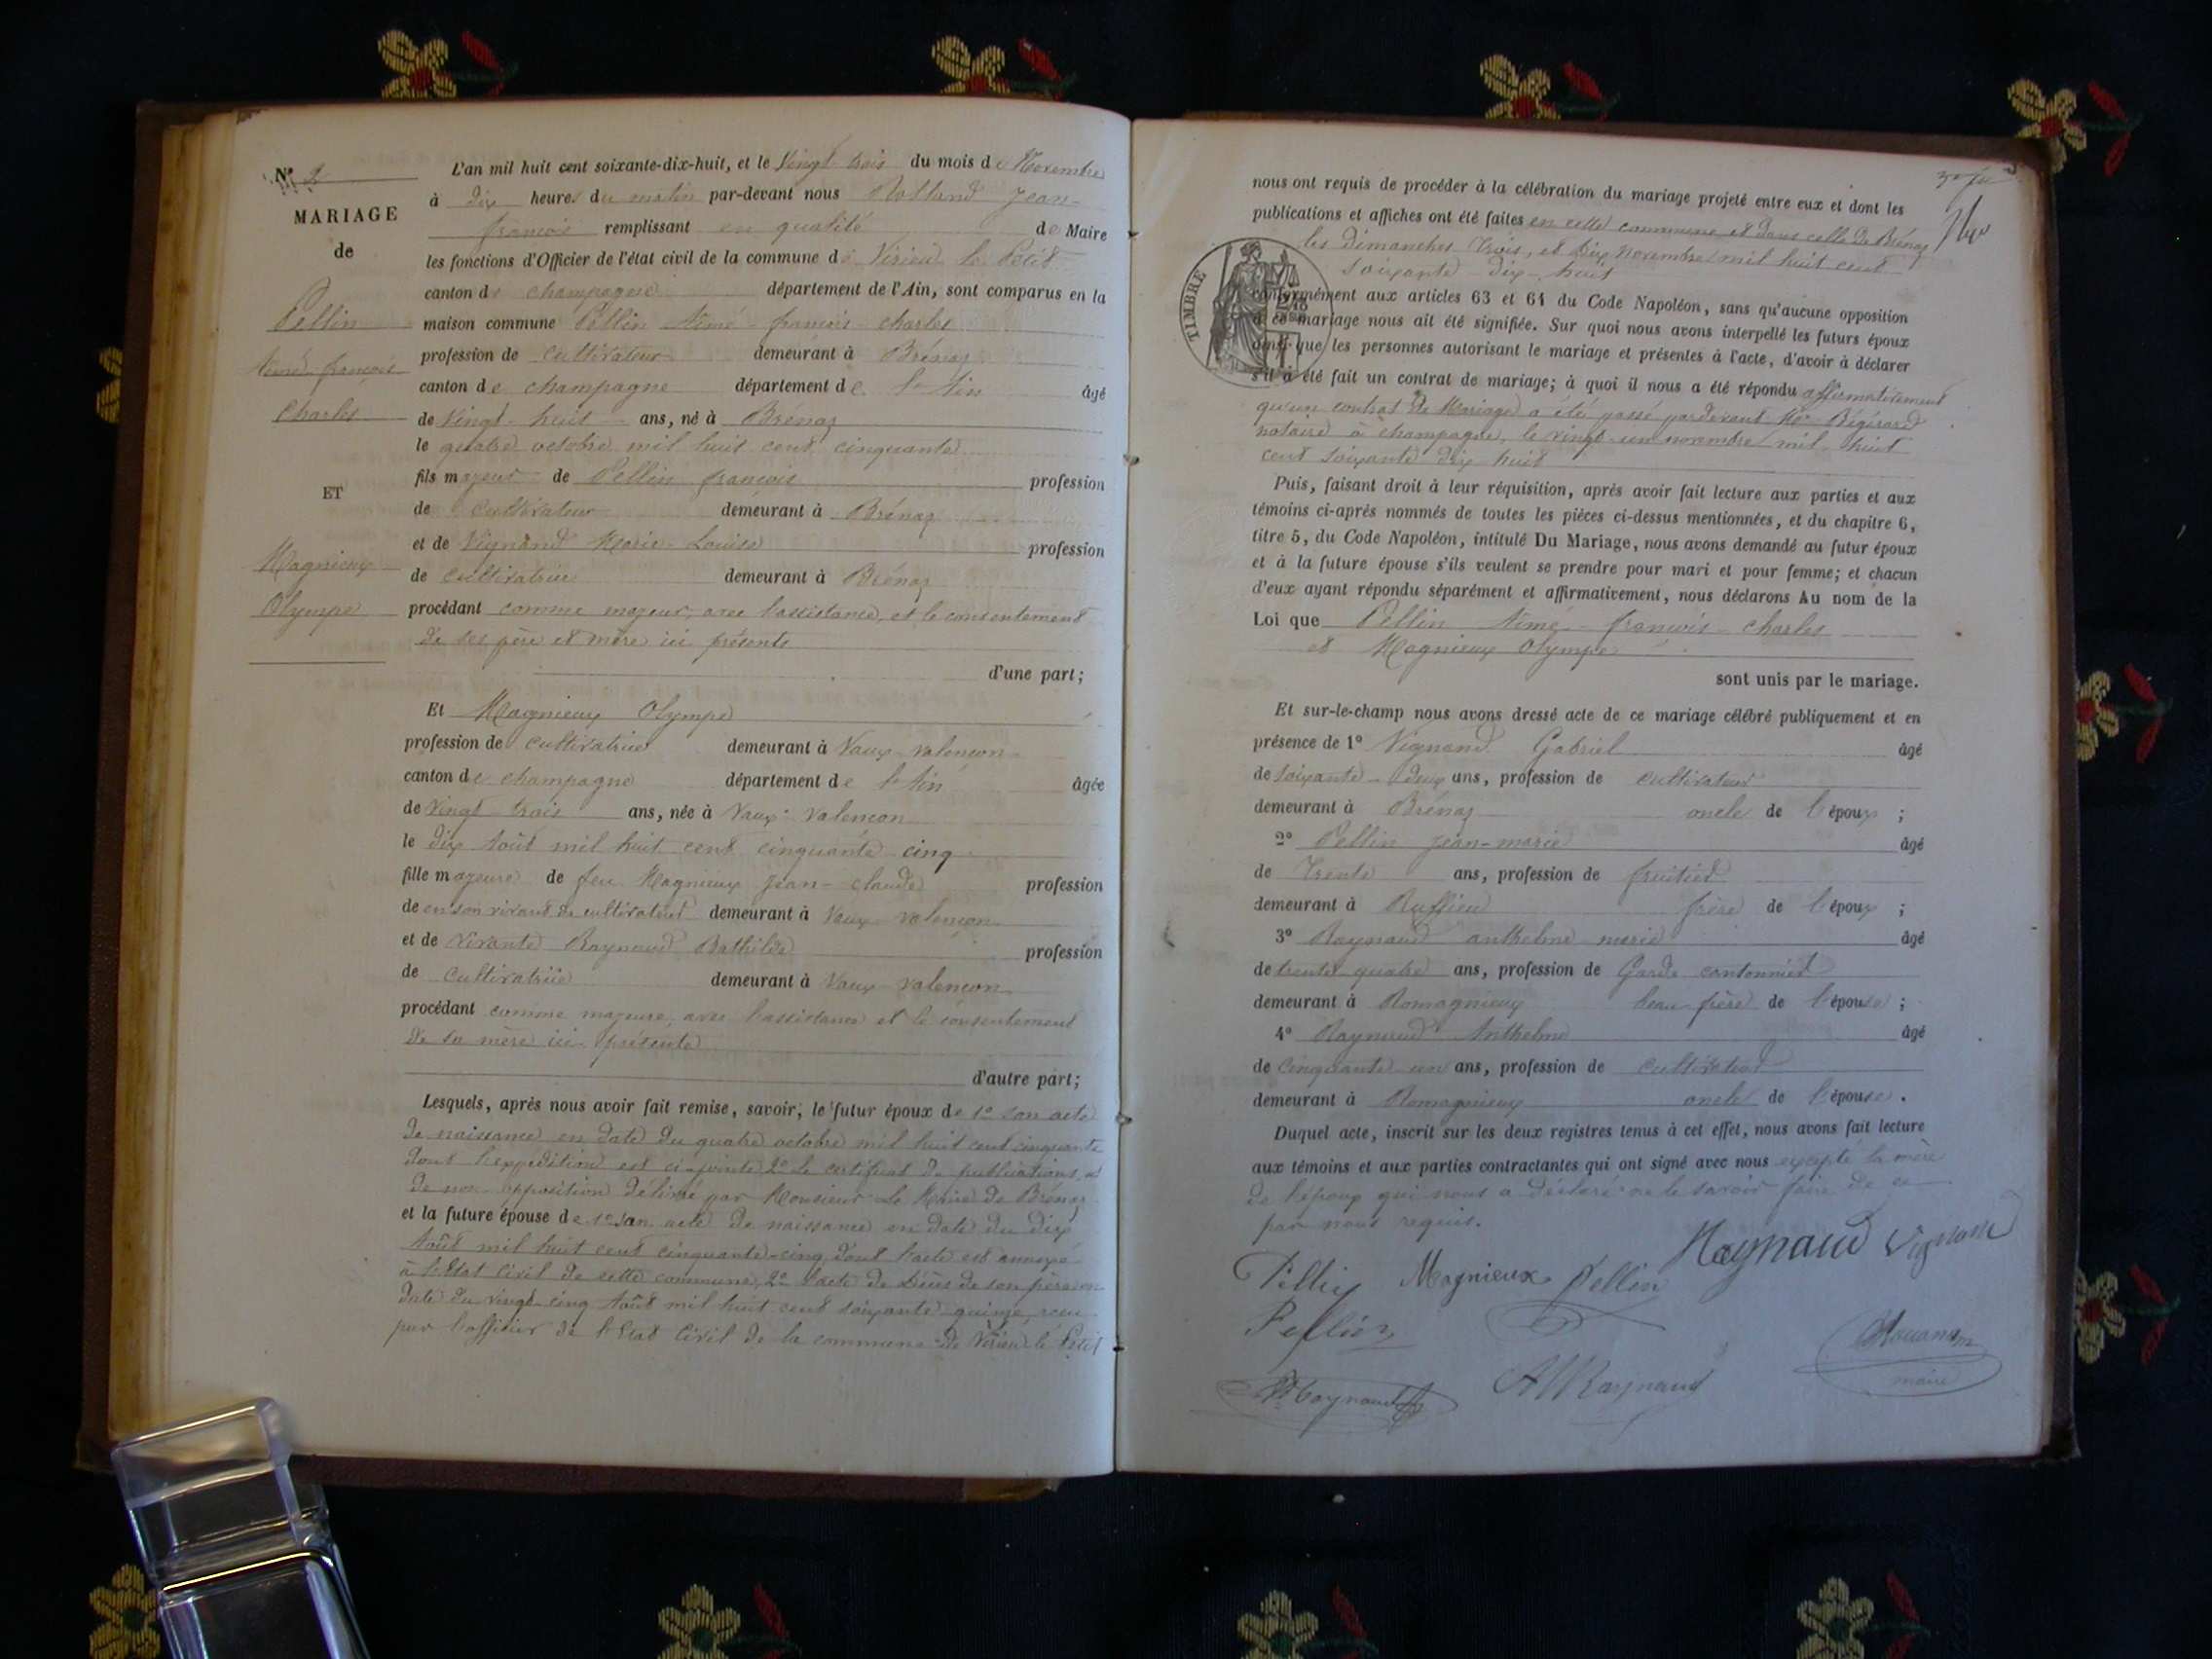 N° 2
MARIAGE
de
Pellin
Aimé françois
Charles
ET
Magnieux
Olympe
L'an mil huit cent soixante-dix-huit, et le Vingt trois du mois de Novembre
à dix heures du matin par-devant nous Jean-
françois remplissant en qualité de Maire
les fonctions d'Officier de l'état civil de la commune de Virieu le Petit
canton de champagne département de l'Ain, sont comparus en la
maison commune Pellin Aimé françois charles
profession de cultivateur demeurant à Brénaz
canton de champagne département de l'Ain âgé
de Vingt-huit ans, né à Brénaz
le quatre octobre mil huit cent cinquante
fils majeur de Pellin françois profession
de cultivateur demeurant à Brénaz
et de Vignand Marie-Louise profession
de cultivatrice demeurant à Brénaz
procédant comme majeur, avec l'assistance et le consentement
de ses père et mère ici présents
d'une part;
Et Magnieux Olympe
profession de cultivatrice demeurant à Vaux-valençon
canton de champagne département de l'Ain âgée
de Vingt trois ans, née à Vaux-valençon
le dix Août mil huit cent cinquante cinq
fille majeure de feu Magnieux Jean-claude profession
de en son vivant de cultivateur demeurant à Vaux-valençon
et de vivante Raynaud Bathilde profession
de cultivatrice demeurant à Vaux valençon
procédant comme majeure, avec l'assistance et le consentement
de sa mère ici présente
d'autre part;
Lesquels, après nous avoir fait remise, savoir; le futur époux de 1° son acte
de naissance en date du quatre octobre mil huit cent cinquante
dont l'expédition est ci-jointe, 2° le certificat de publications et
de non-opposition délivré par Monsieur Le Maire de Brénaz,
et la future épouse de 1° son acte de naissance en date du dix
Août mil huit cent cinquante-cinq dont l'acte est annexé
à l'Etat Civil de cette commune, 2° l'acte de Décès de son père en
date du vingt cinq Août mil huit cent soixante quinze, reçu
par l'officier de l'Etat Civil de la commune de Virieu le Petit
nous ont requis de procéder à la célébration du mariage projeté entre eux et dont les
publications et affiches ont été faites en cette commune et dans celle de Brénaz
les dimanches Trois, et Dix novembre mil huit cent
soixante dix huit
TIMBRE
conformément aux articles 63 et 64 du Code Napoléon, sans qu'aucune opposition
à ce mariage nous ait été signifiée. Sur quoi nous avons interpellé les futurs époux
ainsi que les personnes autorisant le mariage et présentes à l'acte, d'avoir à déclarer
s'il a été fait un contrat de mariage; à quoi il nous a été répondu affirmativement
qu'un contrat de Mariage a été passé pardevant Me Bégérard
notaire à champagne, le vingt-un novembre mil huit
cent soixante dix huit
Puis, faisant droit à leur réquisition, après avoir fait lecture aux parties et aux
témoins ci-après nommés de toutes les pièces ci-dessus mentionnées, et du chapitre 6,
titre 5, du Code Napoléon, intitulé Du Mariage, nous avons demandé au futur époux
et à la future épouse s'ils veulent se prendre pour mari et pour femme; et chacun
d'eux ayant répondu séparément et affirmativement, nous déclarons Au nom de la
Loi que Pellin Aimé-françois-charles
et Magnieux Olympe
sont unis par le mariage.
Et sur-le-champ nous avons dressé acte de ce mariage célébré publiquement et en
présence de 1° Vignand Gabriel âgé
de soixante-deux ans, profession de cultivateur
demeurant à Brénaz oncle de l'époux ;
2° Pellin Jean-marie âgé
de Trente ans, profession de fruitier
demeurant à Ruffieu frère de l'époux ;
3° Raynaud anthelme marie âgé
de trente quatre ans, profession de Garde cantonnier
demeurant à Romagnieux beau frère de l'épouse ;
4° Raynaud Anthelme âgé
de cinquante un ans, profession de cultivateur
demeurant à Romagnieux oncle de l'épouse.
Duquel acte, inscrit sur les deux registres tenus à cet effet, nous avons fait lecture
aux témoins et aux parties contractantes qui ont signé avec nous excepté la mère
de l'époux qui nous a déclaré ne le savoir faire de ce
par nous requis.
Raynaud Vignand
Pellin Magnieux Pellin
Pellin
Raynaud A Raynaud
maire